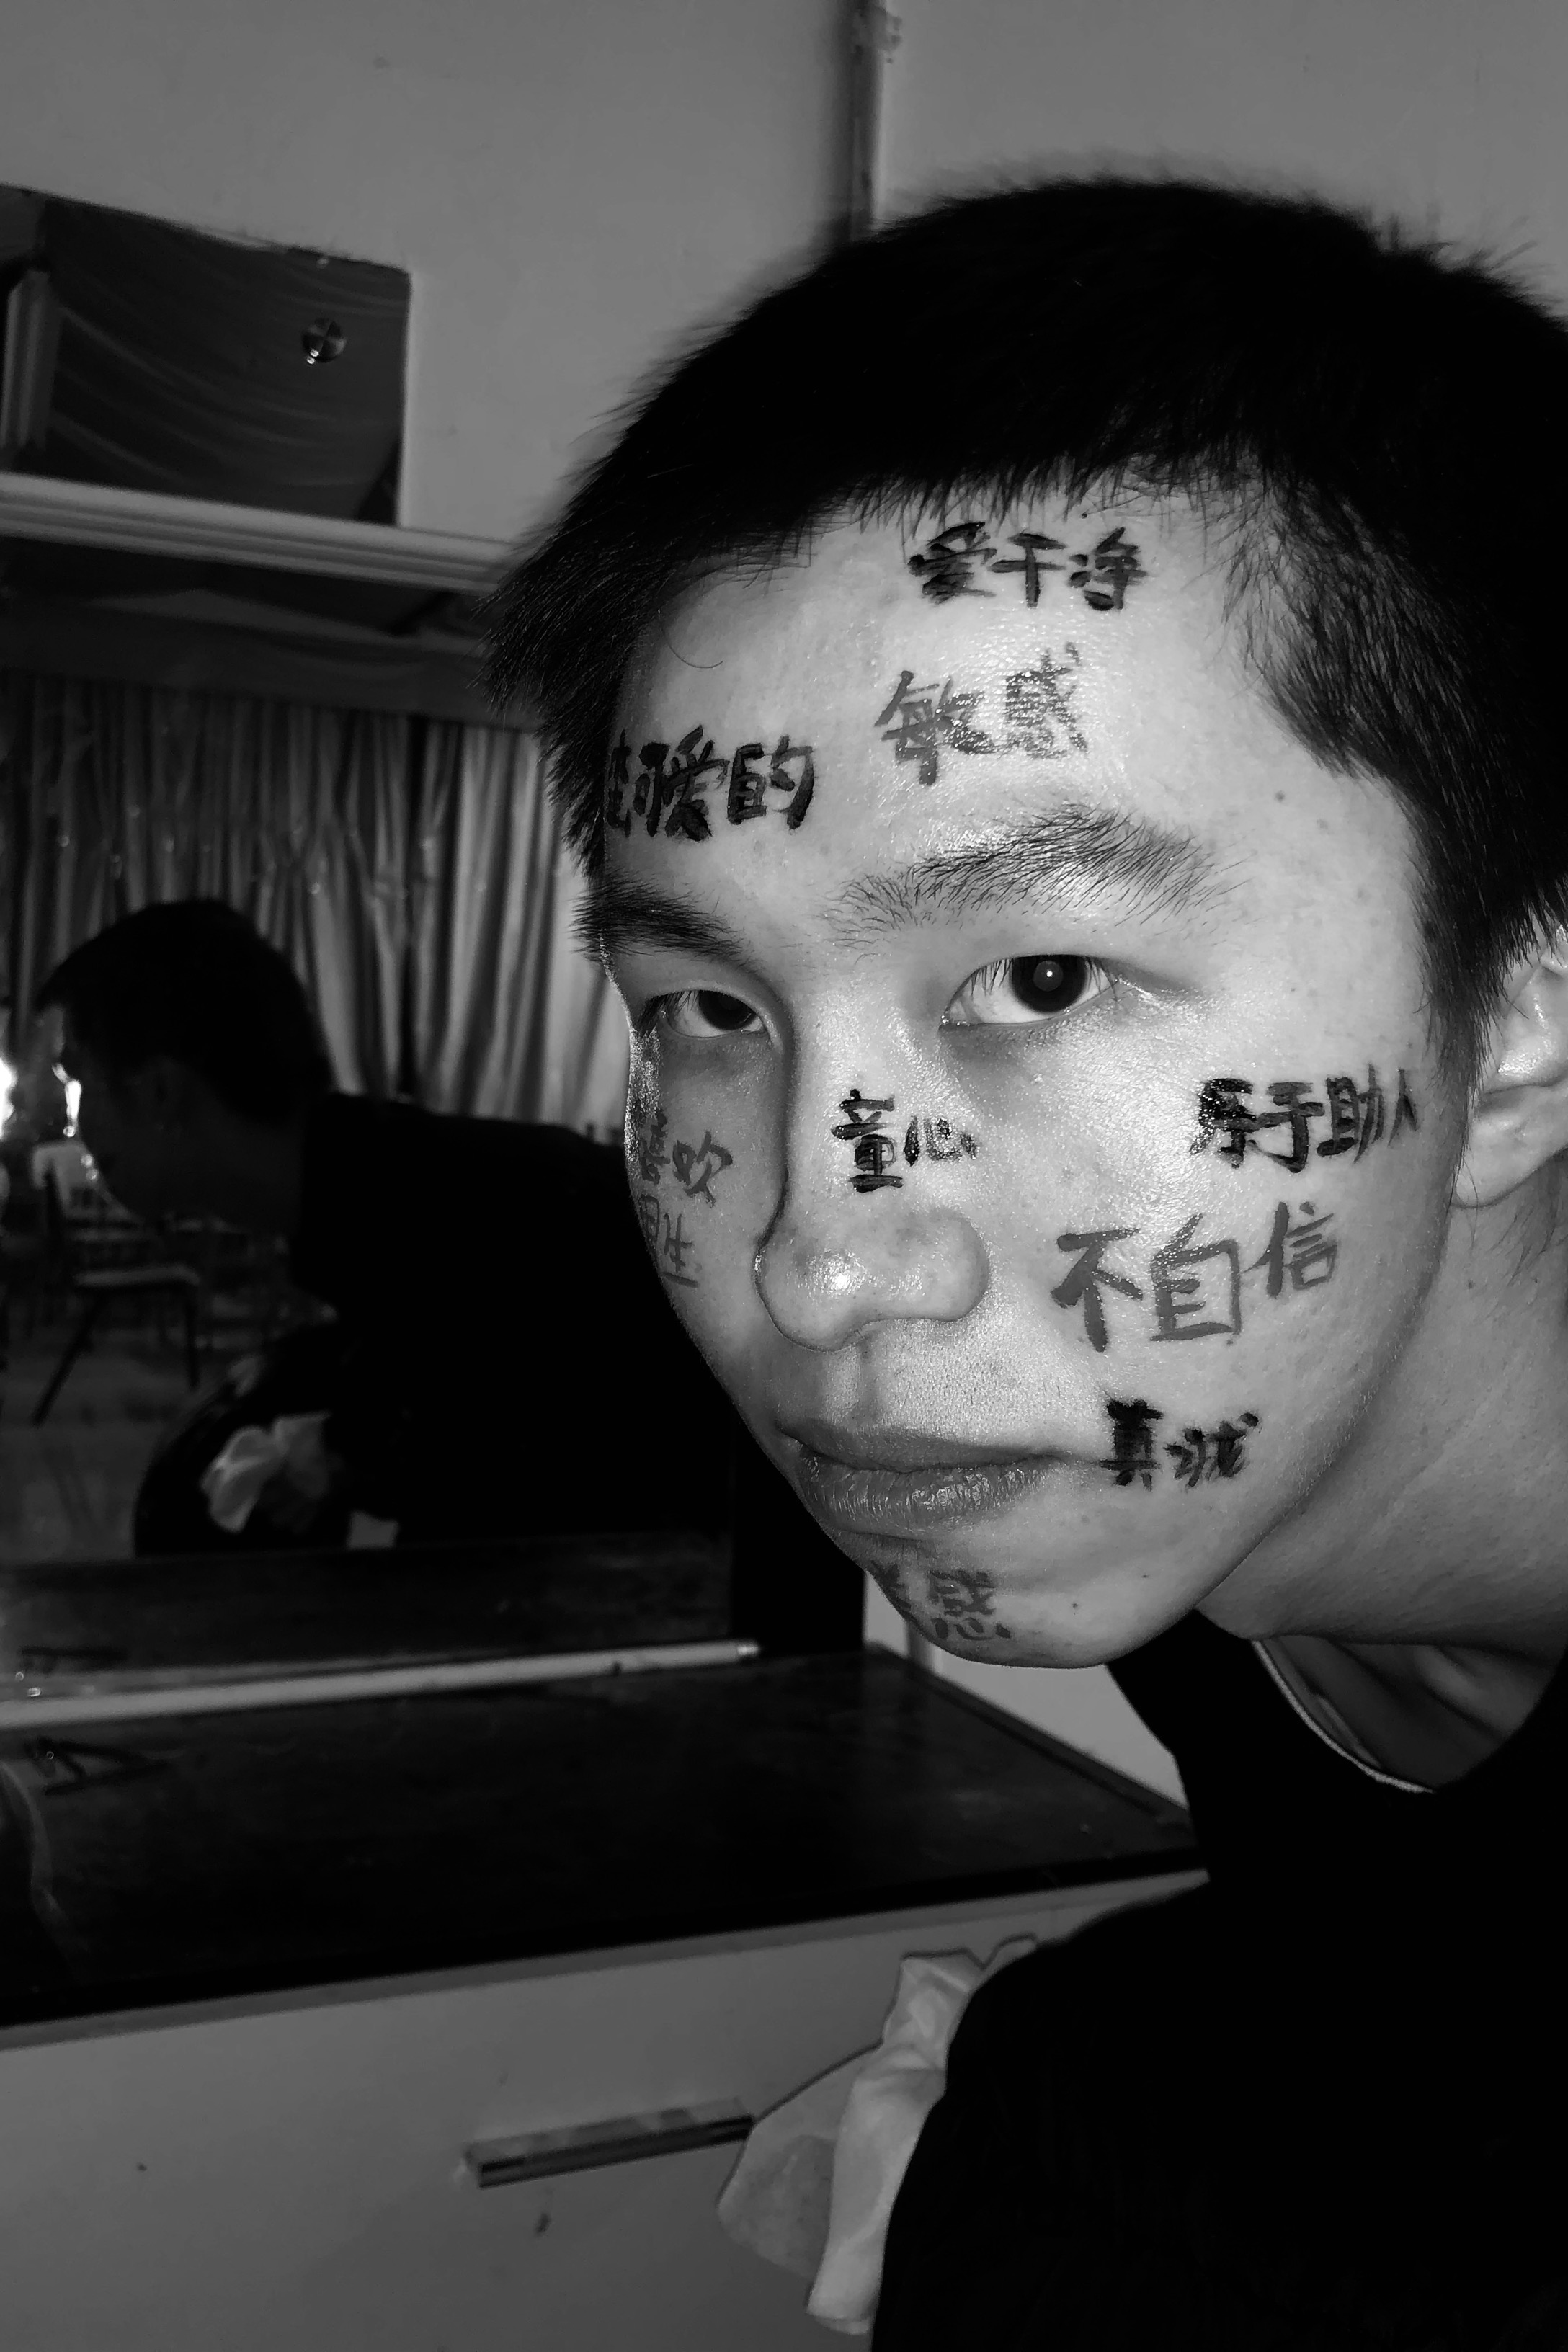 爱干净
敏感
可爱的
童心
乐于助人
喜欢
不自信
真诚
感